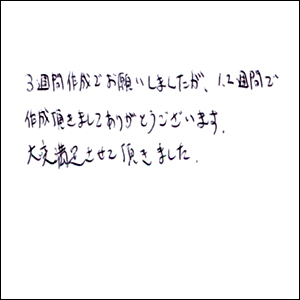 3週間作成でお願いしましたが、1、2週間で
作成頂きましてありがとうございます。
大変満足させて頂きました。